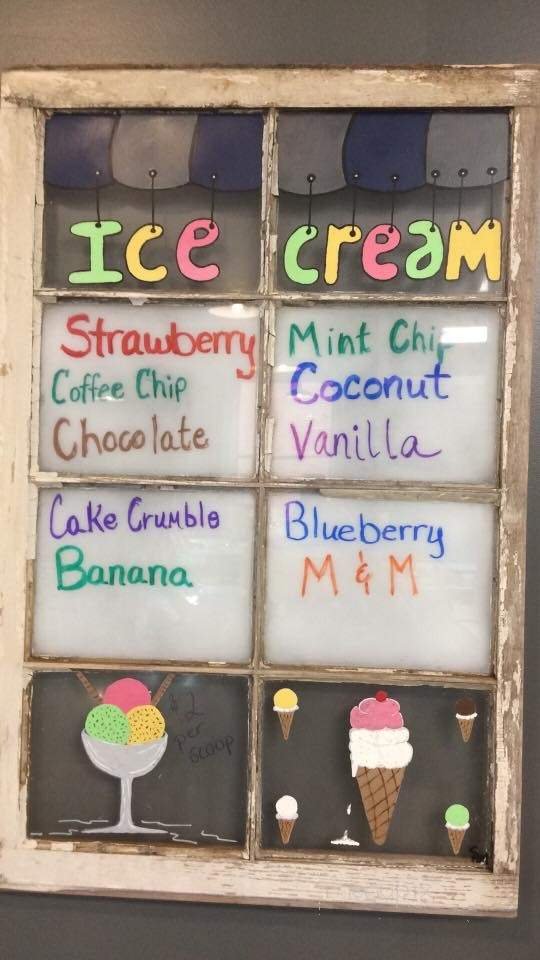 Ice cream
Strawberry
Coffee Chip
Chocolate
Mint Chip
Coconut
Vanilla
Cake Crumble
Banana
Blueberry
M & M
$2
per
scoop